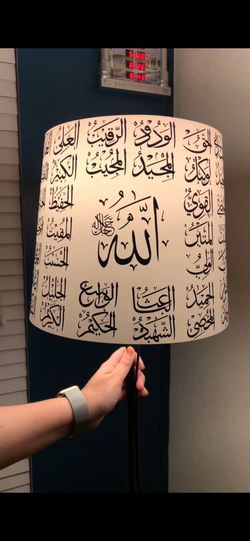 العلي الرقيب الودود الحق
الكبير المجيب المجيد الوكيل
الحفيظ القوي
المقيت الله جل جلاله المتين
الحسيب الولي
الجليل الواسع الباعث الحميد
الكريم الحكيم الشهيد المحصي